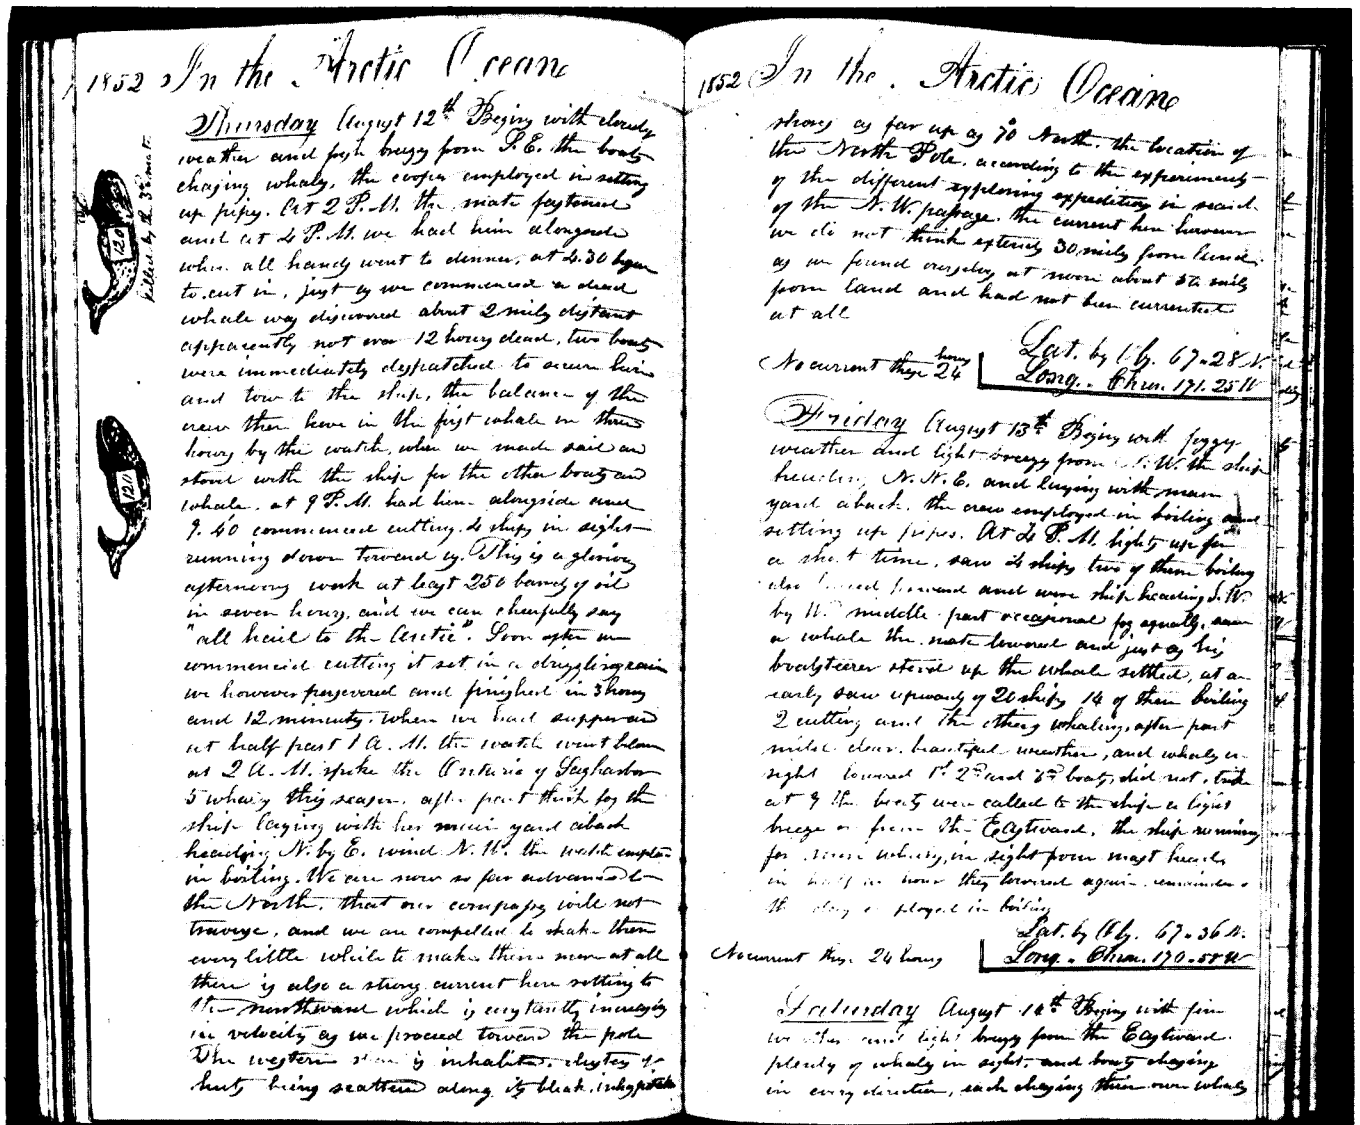 1852 In the Arctic Ocean
Thursday August 12th Begins with cloudy
weather and fresh breezes from S.E. the boats
chasing whales, the cooper employed in setting
up pipes. At 2 P.M. the mate fastened
and at 4 P.M. we had him alongside
when all hands went to dinner, at 4.30 began
to cut in, just as we commenced a dead
whale was discovered about 2 miles distant
apparently not over 12 hours dead, two boats
were immediately despatched to secure him
and tow to the ship, the balance of the
crew then hove in the first whale in three
hours by the watch, when we made sail and
stood with the ship for the other boats and
whale, at 9 P.M. had him alongside and
9.40 commenced cutting. 4 ships in sight
running down toward us. This is a glorious
afternoons work at least 250 barrels of oil
in seven hours, and we can cheerfully say
"all hail to the Arctic". Soon after we
commenced cutting it set in a drizzling rain
we however persevered and finished in 3 hours
and 12 minutes. when we had supper and
at half past 1 A.M. the watch went below
at 2 A.M. spoke the Ontario of Sagharbor
5 whales this season. after part thick fog the
ship laying with her main yard aback
heading N. by E. wind N.W. the watch employed
in boiling. We are now so far advanced to
the North, that our compasses will not
traverse, and we are compelled to shake them
every little while to make them move at all
there is also a strong current here setting to
the northward which is constantly increasing
in velocity as we proceed toward the pole
The western shore is inhabited, clusters of
huts being scattered along its bleak, inhospitable
killed by the 3rd mate
120
120
1852 In the Arctic Ocean
shores as far up as 70° North. the location of
the North Pole, according to the experiments
of the different exploring expeditions in search
of the N.W. passage. the current here however
we do not think extends 30 miles from land.
as we found ourselves at noon about 50 miles
from land and had not been currented
at all
Lat. by Obs. 67.28 N.
No current these 24 hours Long. Chron. 171.25 W
Friday August 13th Begins with foggy
weather and light breezes from N.W. the ship
heading N.N.E. and laying with main
yard aback. the crew employed in boiling and
setting up pipes. At 4 P.M. lights up for
a short time, saw 4 ships two of them boiling
also forward and wore ship heading S.W.
by W. middle part occasional fog squalls, saw
a whale the mate lowered and just as his
boatsteerer stood up the whale settled, at
early saw upwards of 20 ships 14 of them boiling
2 cutting and the others whaling, after part
mild clear beautiful weather, and whales in
sight lowered 1st 2nd and 3rd boats, did not strike
at 9 the boats were called to the ship a light
breeze from the Eastward. the ship running
for more whales, in sight from mast heads
in half an hour they lowered again. remainder
the day employed in boiling
Lat. by Obs. 67.36 N.
No current these 24 hours Long. Chron. 170.58 W
Saturday August 14th Begins with fine
weather and light breezes from the Eastward.
plenty of whales in sight, and boats chasing
in every direction, each chasing their own whales